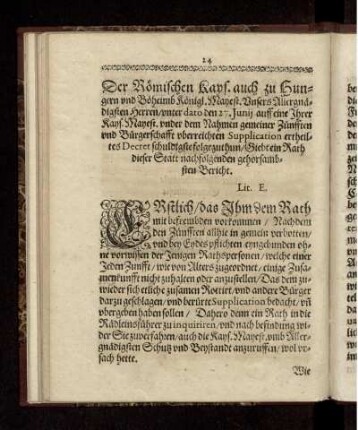 24
Der Römischen Kays. auch zu Hun-
gern vnd Böheimb Königl. Mayest. Vnsers Allergnä-
digsten Herren/vnter dato den 27. Junij auff eine Ihrer
Kays. Mayest. vnder dem Nahmen gemeiner Zünfften
vnd Bürgerschafft vberreichten Supplication ertheil-
tes Decret schuldigste folge zuthun/Giebt ein Rath
dieser Statt nachfolgenden gehorsamb-
sten Bericht.
Lit. E.
ERstlich/das Ihm dem Rath
mit befrembden vorkommen/Nachdem
den Zünfften allhie in gemein verbotten/
vnd bey Eydes pflichten eingebunden oh-
ne vorwissen der Jenigen Rathspersonen/welche einer
Jeden Zunfft/wie von Alters zugeordnet/einige Zusa-
menkunfft nicht zuhalten oder anzustellen/Das dem zu-
wieder sich etliche zusamen Rottirt/vnd andere Bürger
darzu geschlagen/vnd berürte Supplication bedacht/vñ
vbergeben haben sollen/Dahero dem ein Rath in die
Rädleinsführer zu inquiriren/vnd nach befindung wi-
der Sie zuverfahren/auch die Kays. Mayest. vmb Aller-
gnädigsten Schutz vnd Beystandt anzuruffen/wol vr-
sach hette.
Wie